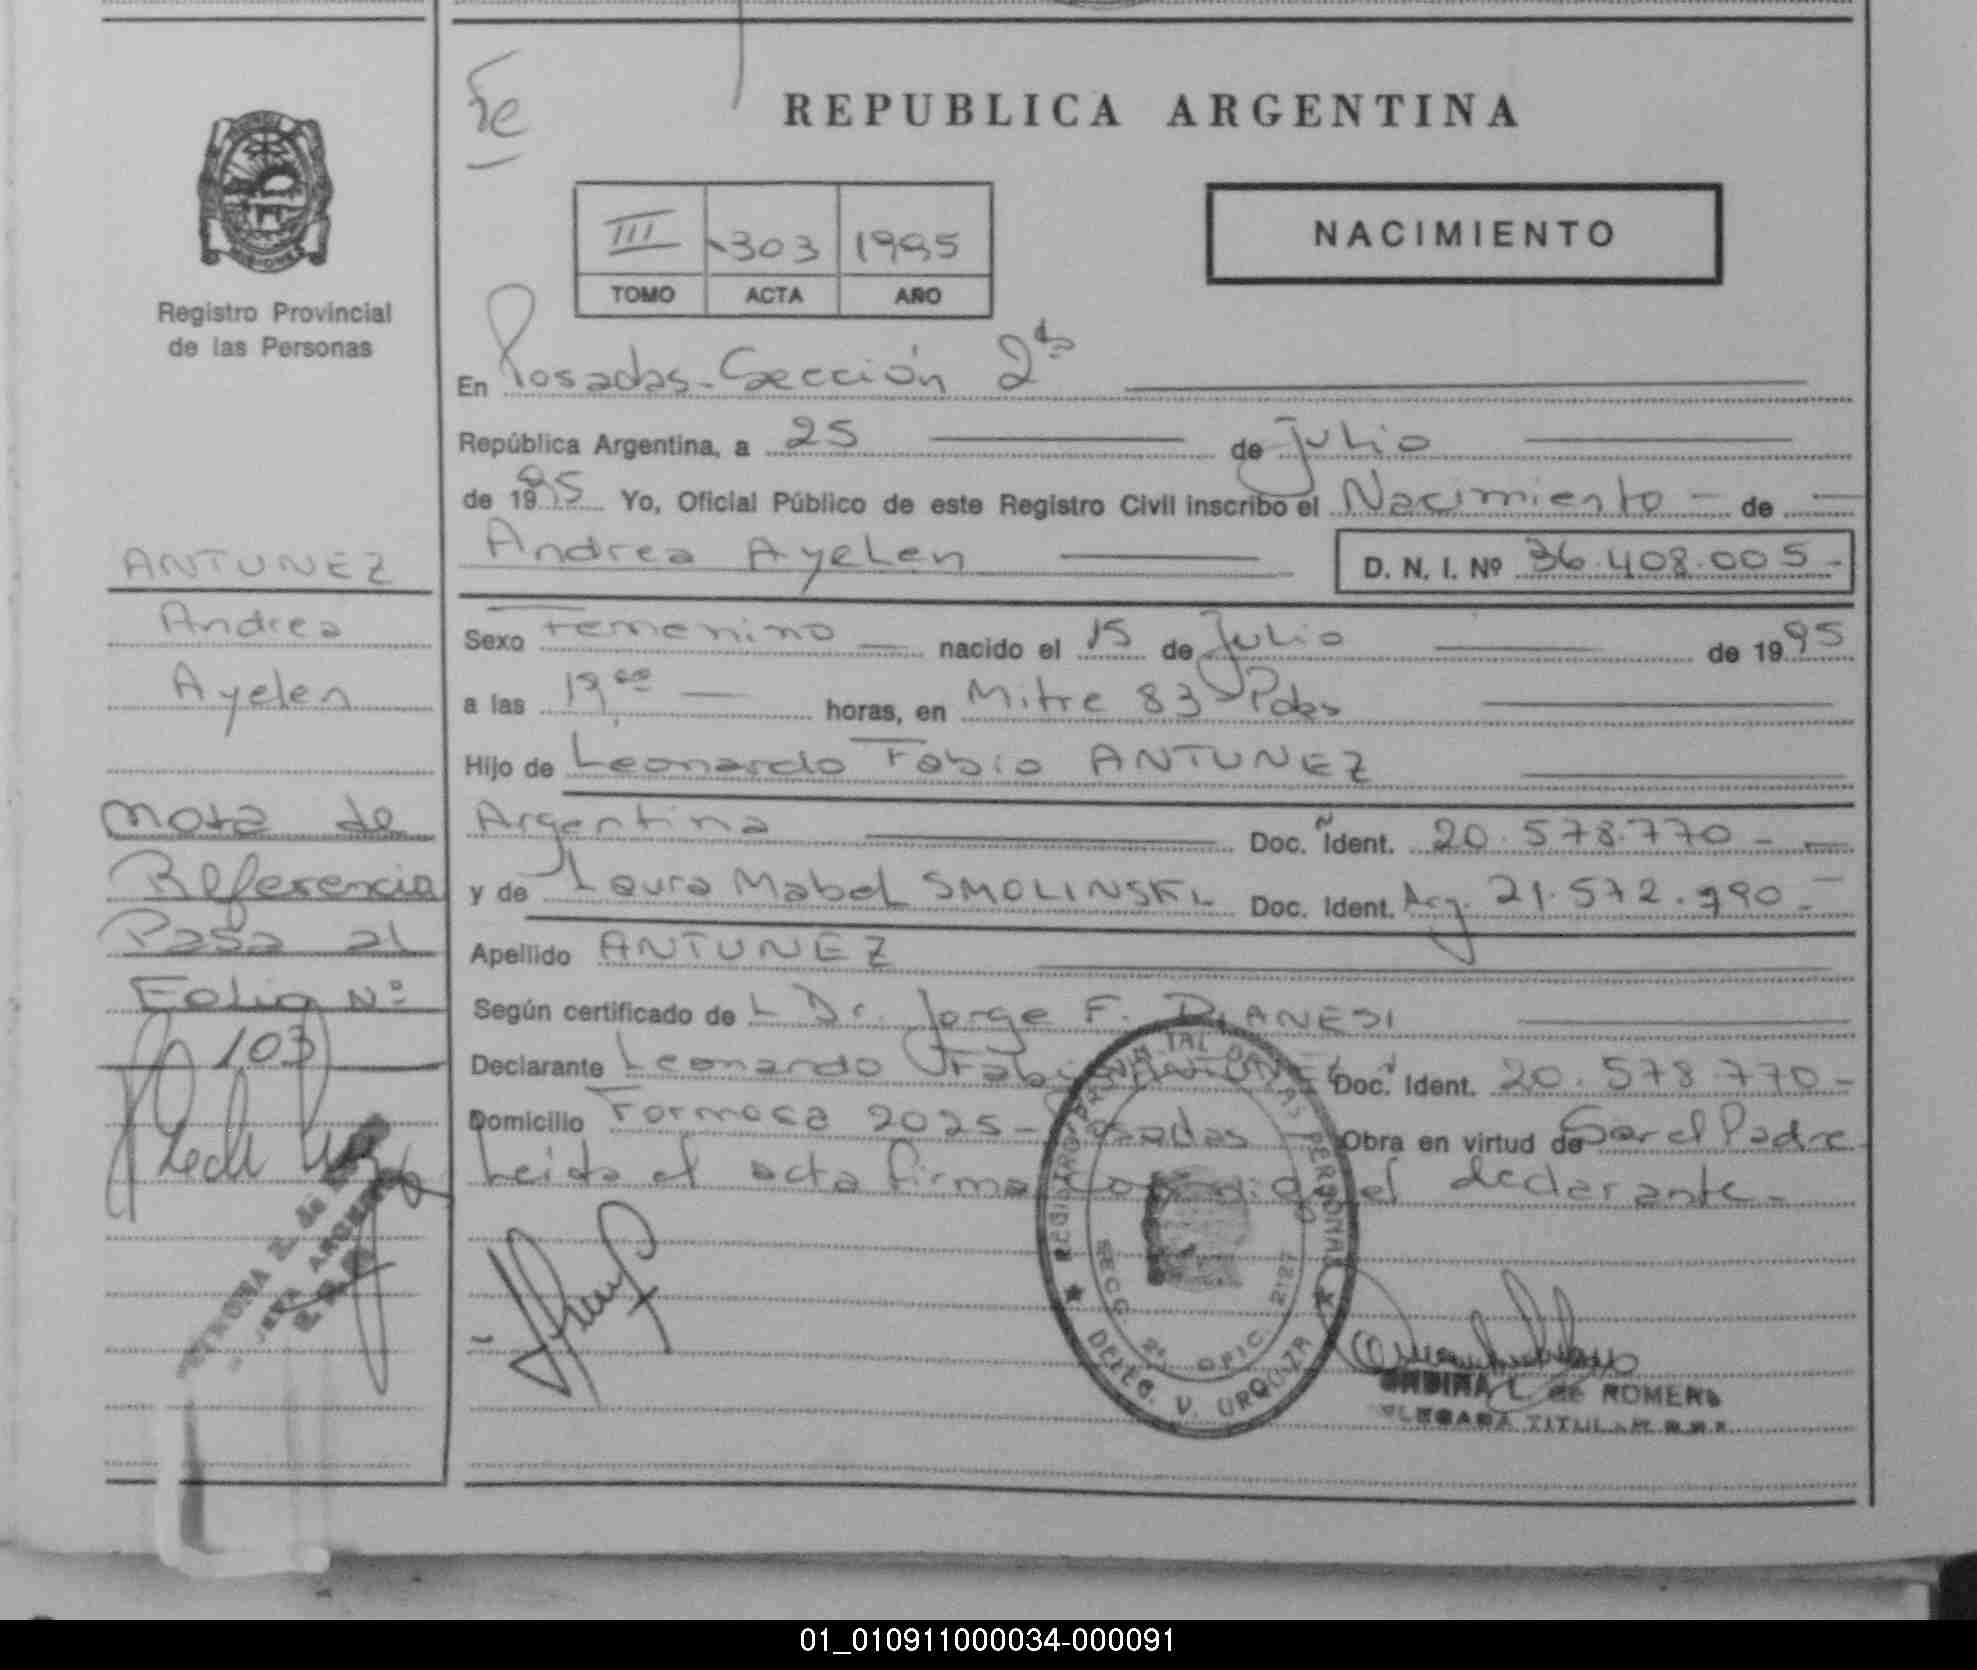 Fe
REPUBLICA ARGENTINA
III 303 1995
TOMO ACTA AÑO
NACIMIENTO
Registro Provincial
de las Personas
En Posadas-Sección 2da
República Argentina, a 25 de Julio
de 1995 Yo, Oficial Público de este Registro Civil inscribo el Nacimiento - de
Andrea Ayelen D. N. I. Nº 36.408.005-
Sexo Femenino nacido el 15 de Julio de 1995
a las 19 horas, en Mitre 83 Pdas
Hijo de Leonardo Fabio ANTUNEZ
Argentina Doc. Ident. 20.578.770-
y de Laura Mabel SMOLINSKI Doc. Ident. Arg. 21.572.990-
Apellido ANTUNEZ
Según certificado de L Dr. Jorge F. DIANESI
Declarante Leonardo Fabio ANTUNEZ Doc. Ident. 20.578.770-
Domicilio Formosa 2025- Posadas Obra en virtud de Ser el Padre
Leida el acta firma conmigo el declarante-
ANTUNEZ
Andrea
Ayelen
Nota de
Referencia
Pasa al
Folio Nº
103
REGISTRO PROVINCIAL DE LAS PERSONAS
SECC. 2ª OFIC. 2127
DELEG. V. URQUIZA
ONDINA L. de ROMERO
DELEGADA TITULAR
01_010911000034-000091